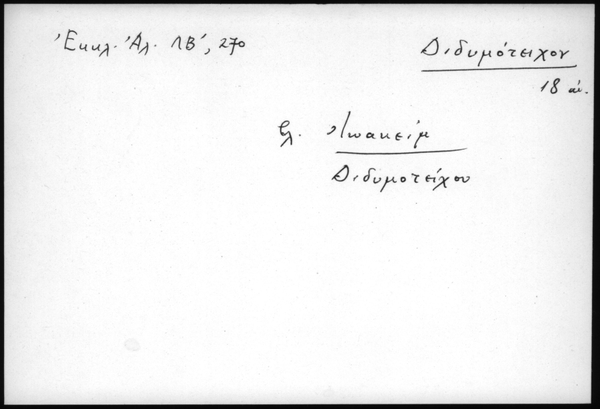 Ἐκκλ. Ἀλ. ΛΒ', 270
Διδυμότειχον
18 αἰ.
βλ. Ἰωακείμ
Διδυμοτείχου